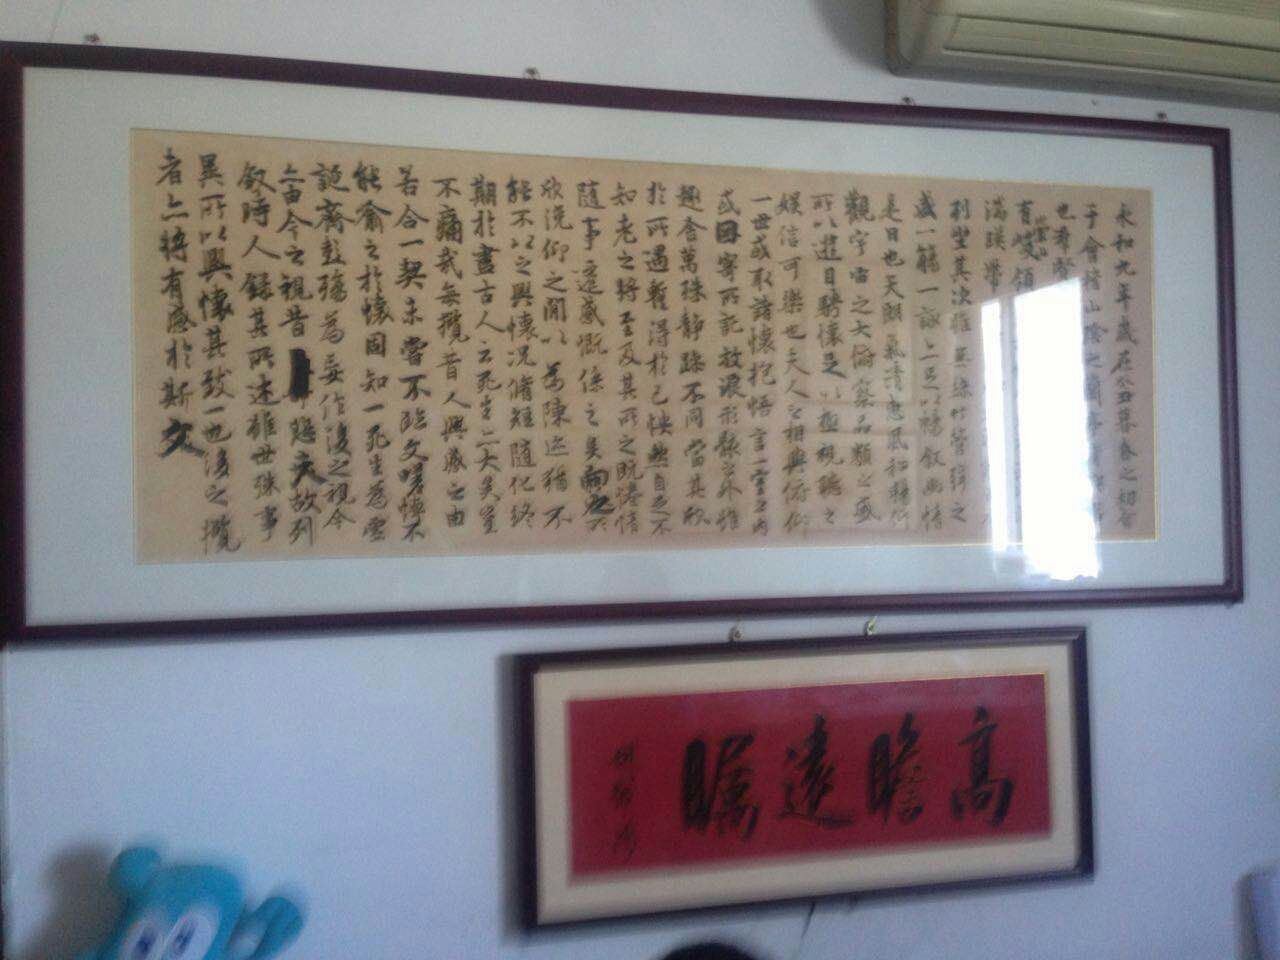 永和九年歲在癸丑暮春之初會
于會稽山陰之蘭亭
也羣賢
有崇山峻領
湍暎帶
列坐其次雖無絲竹管弦之
盛一觴一詠亦足以暢敘幽情
是日也天朗氣清惠風和暢仰
觀宇宙之大俯察品類之盛
所以遊目騁懷足以極視聽之
娛信可樂也夫人之相與俯仰
一世或取諸懷抱悟言一室之內
或因寄所託放浪形骸之外雖
趣舍萬殊靜躁不同當其欣
於所遇蹔得於己怏然自足不
知老之將至及其所之既惓情
隨事遷感慨係之矣向之所
欣俛仰之閒以為陳迹猶不
能不以之興懷況脩短隨化終
期於盡古人云死生亦大矣豈
不痛哉每攬昔人興感之由
若合一契未嘗不臨文嗟悼不
能喻之於懷固知一死生為虛
誕齊彭殤為妄作後之視今
亦由今之視昔悲夫故列
敘時人錄其所述雖世殊事
異所以興懷其致一也後之攬
者亦將有感於斯文
高瞻遠矚